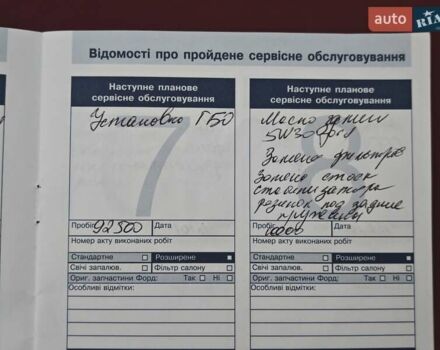 auto RIA
Відомості про пройдене сервісне обслуговування
Наступне планове
сервісне обслуговування
7
Установка ГБО
Пробіг 92500 Дата
Номер акту виконаних робіт
Стандартне Розширене
Свічі запалюв. Фільтр салону
Ориг. запчастини Форд: Так Ні
Особливі відмітки:
Наступне планове
сервісне обслуговування
8
Масло
5W30
Замена фильтров
Замена стоек
стабилизатора
резинок под задние
пружины
Пробіг Дата
Номер акту виконаних робіт
Стандартне Розширене
Свічі запалюв. Фільтр салону
Ориг. запчастини Форд: Так Ні
Особливі відмітки: